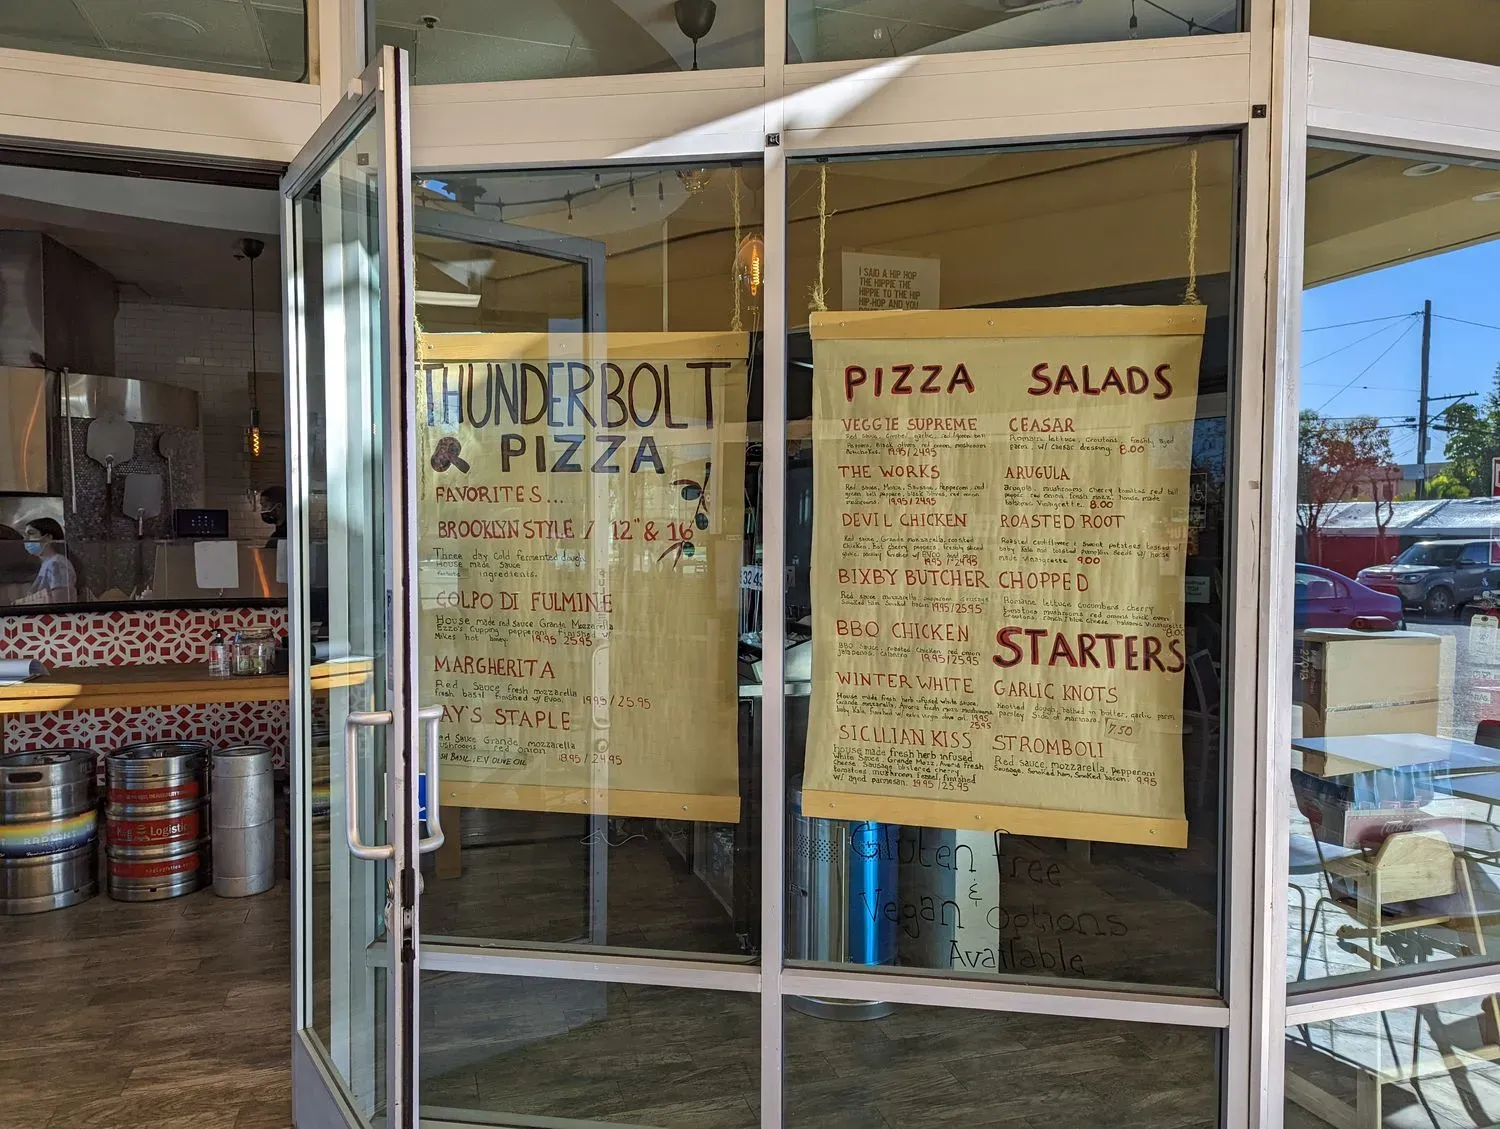 I SAID A HIP HOP
THE HIPPIE THE
HIPPIE TO THE HIP
HIP-HOP AND YOU
THUNDERBOLT
PIZZA
FAVORITES...
BROOKLYN STYLE / 12" & 16"
Three day cold fermented dough
House made Sauce
fantastic ingredients.
COLPO DI FULMINE
House made red sauce Grande Mozzarella
Ezzo's Cupping pepperoni finished w/
Mikes hot honey. 19.95 25.95
MARGHERITA
Red Sauce fresh mozzarella
fresh basil finished w/ EVOO. 19.95/25.95
AY'S STAPLE
ed Sauce Grande mozzarella
ushrooms red onion
SH BASIL, EV OLIVE OIL 18.95/24.95
PIZZA
VEGGIE SUPREME
Red sauce, Combo, garlic, red/green bell
Peppers, Black olives red onion mushrooms
Artichokes. 19.95/24.95
THE WORKS
Red sauce, Mozza, Sausage, Pepperoni, red
green bell peppers, black olives, red onion
mushrooms. 19.95/24.95
DEVIL CHICKEN
Red sauce, Grande mozzarella, roasted
Chicken, hot cherry peppers, freshly sliced
garlic, parsley finished w/ EVOO and parm.
19.95/24.95
BIXBY BUTCHER
Red sauce mozzarella pepperoni sausage
Smoked ham Smoked bacon 19.95/25.95
BBQ CHICKEN
BBQ Sauce, roasted chicken, red onion
jalapenos, cilantro 19.95/25.95
WINTER WHITE
House made fresh herb infused white sauce,
Grande mozzarella, fresh mozz mushrooms
baby kale finished w/ extra virgin olive oil. 19.95
25.95
SICLLIAN KISS
house made fresh herb infused
White Sauce, Grande Mozz, fresh
Cheese Sausage blistered cherry
tomatoes, mushroom fennel, finished
w/ aged parmesan. 19.95/25.95
SALADS
CEASAR
Romain lettuce, croutons, freshly
parm, w/ Caesar dressing. 8.00
ARUGULA
Arugula, mushrooms, cherry tomatoes red bell
pepper red onion fresh mozz. house made
balsamic Vinaigrette. 8.00
ROASTED ROOT
Roasted cauliflower & sweet potatoes tossed w/
baby kale and toasted pumpkin seeds w/ house
made vinaigrette 9.00
CHOPPED
Romaine lettuce cucumbers, cherry
tomatoes mushrooms red onions
croutons, ranch/blue cheese/balsamic Vinaigrette
8.00
STARTERS
GARLIC KNOTS
Knotted dough, bathed in butter, garlic, parm,
parsley Side of marinara. 7.50
STROMBOLI
Red Sauce, mozzarella, Pepperoni
Sausage, Smoked ham, Smoked bacon. 9.95
Gluten free
&
Vegan Options
Available
Keg Logistics